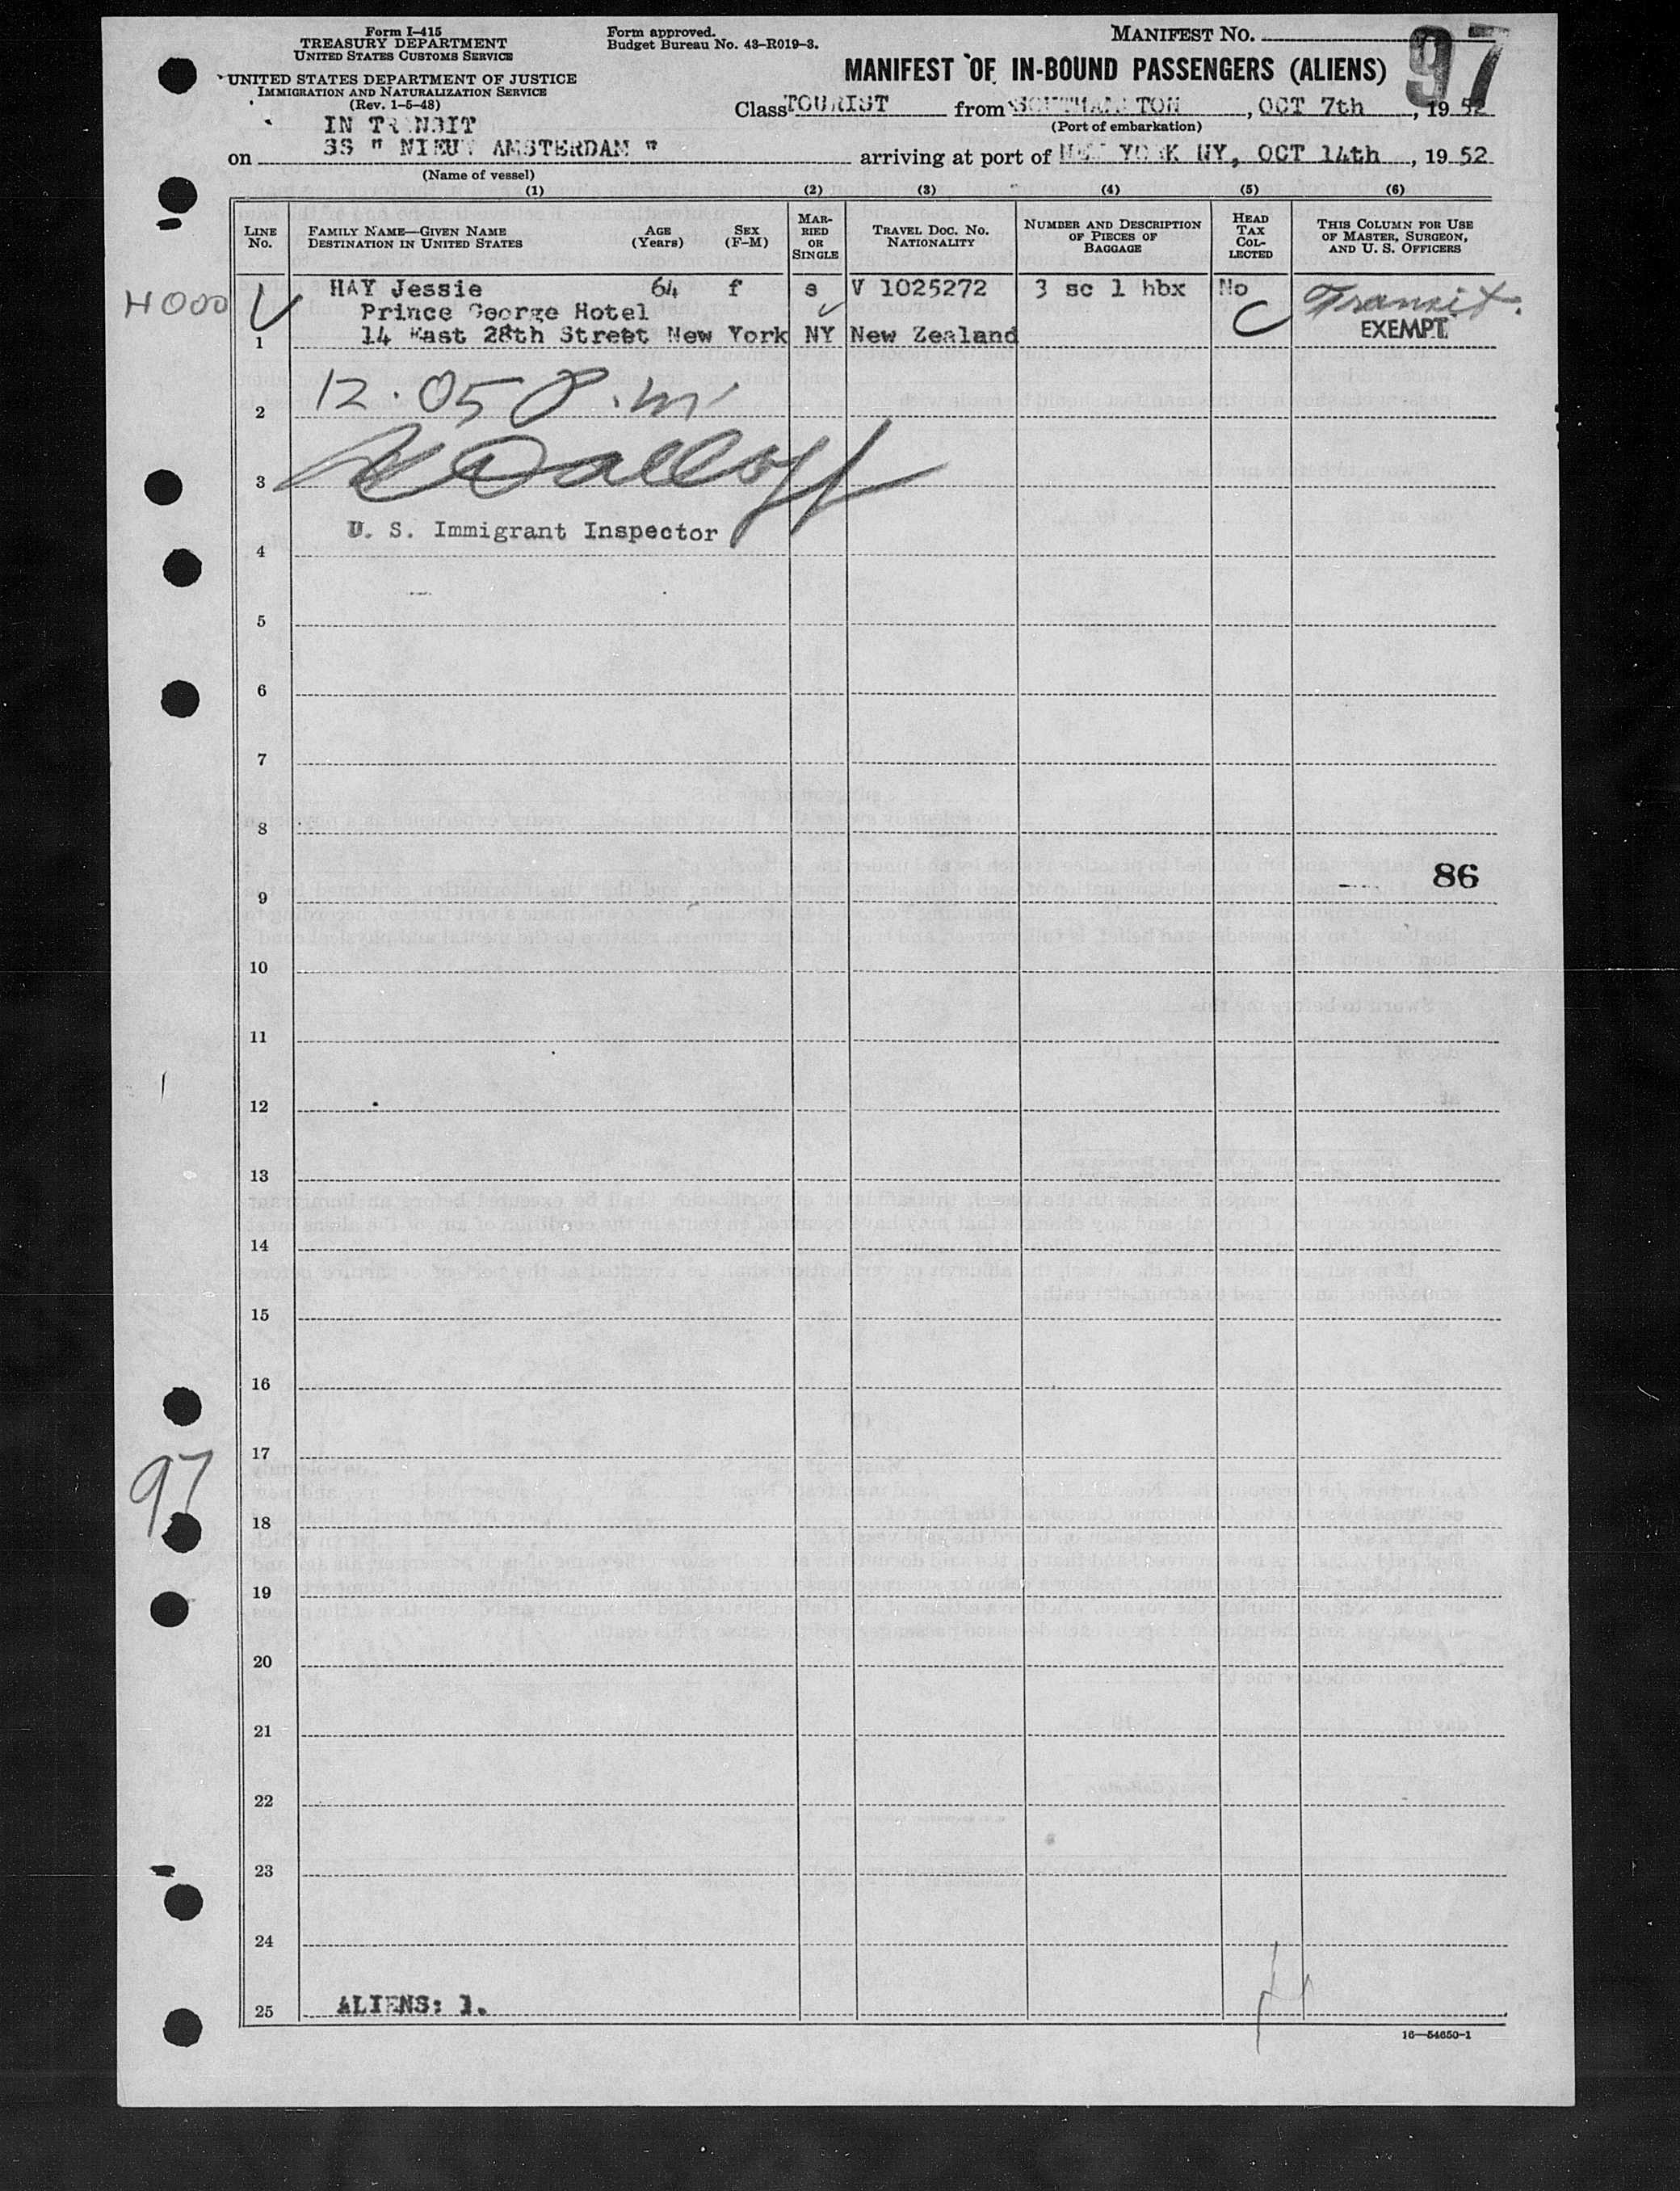 Form I-415
TREASURY DEPARTMENT
UNITED STATES CUSTOMS SERVICE
UNITED STATES DEPARTMENT OF JUSTICE
IMMIGRATION AND NATURALIZATION SERVICE
(Rev. 1-5-48)
Form approved.
Budget Bureau No. 43-R019-3.
MANIFEST NO.
97
MANIFEST OF IN-BOUND PASSENGERS (ALIENS)
Class TOURIST from SOUTHAMPTON, OCT 7th, 19 52
(Port of embarkation)
IN TRANSIT
on SS " NIEUW AMSTERDAM " arriving at port of NEW YORK NY, OCT 14th, 19 52
(Name of vessel)
(1) (2) (3) (4) (5) (6)
LINE No.
FAMILY NAME—GIVEN NAME
DESTINATION IN UNITED STATES
AGE (Years)
SEX (F-M)
MARRIED OR SINGLE
TRAVEL DOC. NO.
NATIONALITY
NUMBER AND DESCRIPTION OF PIECES OF BAGGAGE
HEAD TAX COLLECTED
THIS COLUMN FOR USE OF MASTER, SURGEON, AND U. S. OFFICERS
H000 HAY Jessie 64 f s V 1025272 3 sc 1 hbx No Transit.
Prince George Hotel
1 14 East 28th Street New York NY New Zealand EXEMPT
2 12.05 P.m
3
U. S. Immigrant Inspector
4
5
6
7
8
86
9
10
11
12
13
14
15
16
17
97
18
19
20
21
22
23
24
25 ALIENS: 1.
16—54650-1